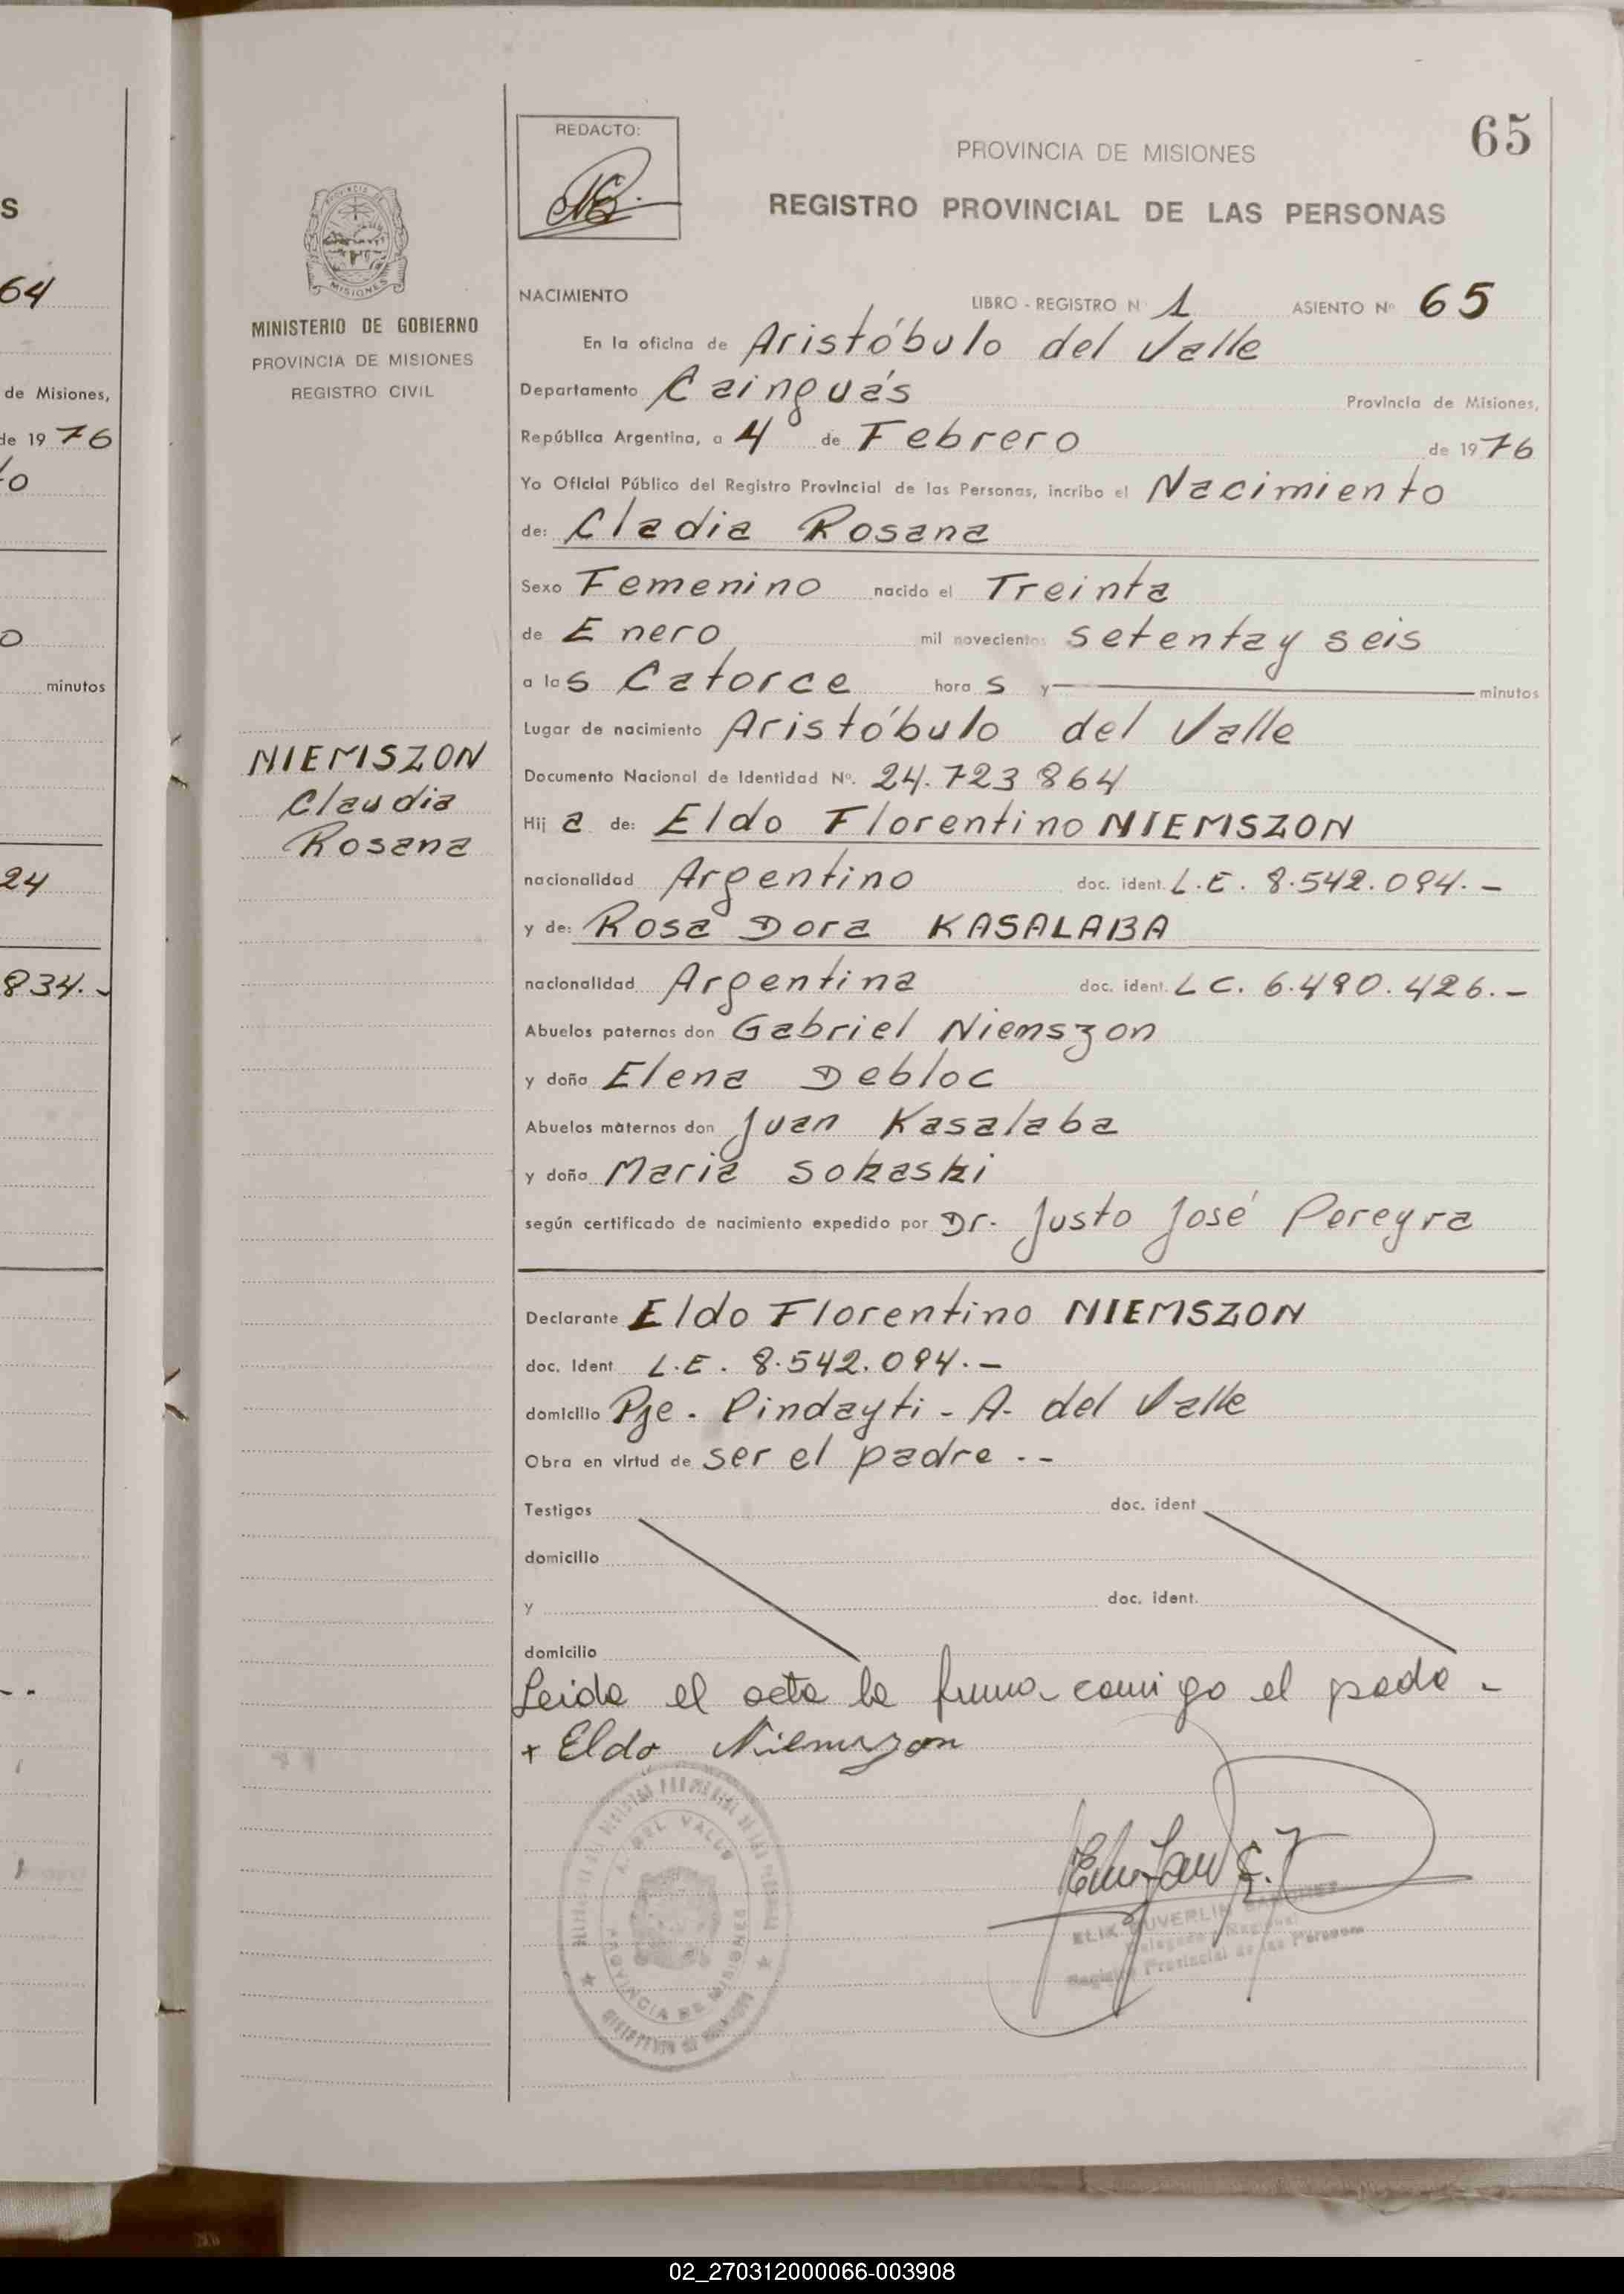 S
64
de Misiones,
de 19 76
to
o
minutos
24
834.-
MISIONES
MINISTERIO DE GOBIERNO
PROVINCIA DE MISIONES
REGISTRO CIVIL
NIEMSZON
Claudia
Rosana
REDACTO:
65
PROVINCIA DE MISIONES
REGISTRO PROVINCIAL DE LAS PERSONAS
NACIMIENTO LIBRO - REGISTRO Nº 1 ASIENTO Nº 65
En la oficina de Aristóbulo del Valle
Departamento Cainguás Provincia de Misiones,
República Argentina, a 4 de Febrero de 19 76
Yo Oficial Público del Registro Provincial de las Personas, incribo el Nacimiento
de: Cladia Rosana
Sexo Femenino nacido el Treinta
de Enero mil novecientos setenta y seis
a las Catorce horas y minutos
Lugar de nacimiento Aristóbulo del Valle
Documento Nacional de Identidad Nº. 24.723864
Hij a de: Eldo Florentino NIEMSZON
nacionalidad Argentino doc. ident. L.E. 8.542.094.-
y de: Rosa Dora KASALABA
nacionalidad Argentina doc. ident. L C. 6.490.426.-
Abuelos paternos don Gabriel Niemszon
y doña Elena Debloc
Abuelos maternos don Juan Kasalaba
y doña Maria Sokaski
según certificado de nacimiento expedido por Dr. Justo José Pereyra
Declarante Eldo Florentino NIEMSZON
doc. Ident L.E. 8.542.094.-
domicilio Pje. Pindayti - A. del Valle
Obra en virtud de ser el padre --
Testigos doc. ident
domicilio
y doc. ident.
domicilio
Leida el acta la firma comigo el padre -
+ Eldo Niemszon
A. DEL VALLE
PROVINCIA DE MISIONES
Registro Provincial de las Personas
02_270312000066-003908